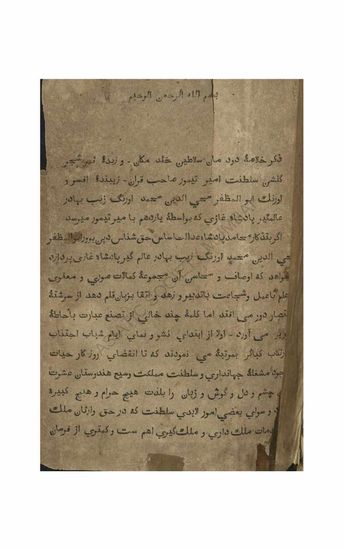 بسم الله الرحمن الرحيم
ذكر خلاصهٔ دودمان سلاطين خلد مكان - و زبدهٔ
گلشن سلطنت امير تيمور صاحب قران - زيبندهٔ افسر و
اورنگ ابو المظفر محي الدين محمد اورنگ زيب بهادر
عالمگير پادشاه غازي كه بواسطهٔ يازدهم با مير تيمور ميرسد
اگر بتذكار محامد پادشاه عدالت اساس حق شناس دين پرور ابو المظفر
حي الدين محمد اورنگ زيب بهادر عالم گير پادشاه غازي پردازد
خواهد كه اوصاف و محاسن آن مجموعهٔ كمالات صوري و معنوي
علم باعمل و شجاعت باتدبير و زهد و اتقا بزبان قلم دهد از سررشتهٔ
اختصار دور مي افتد اما كلمهٔ چند خالي از تصنع عبارت باحاطهٔ
مي آورد - اولا از ابتداي نشو و نماي ايام شباب اجتناب
كبائر بمرتبهٔ مي نمودند كه تا انقضاي روزگار حيات
مشغلهٔ جهانداري و سلطنت مملكت وسيع هندوستان عشرت
چشم و دل و گوش و زبان را بلذت هيچ حرام و هيچ كبيرهٔ
و سواي بعضي امور لابدي سلطنت كه در حق وارثان ملك
ملك داري و ملك گيري اهم ست و كمتري از فرمان